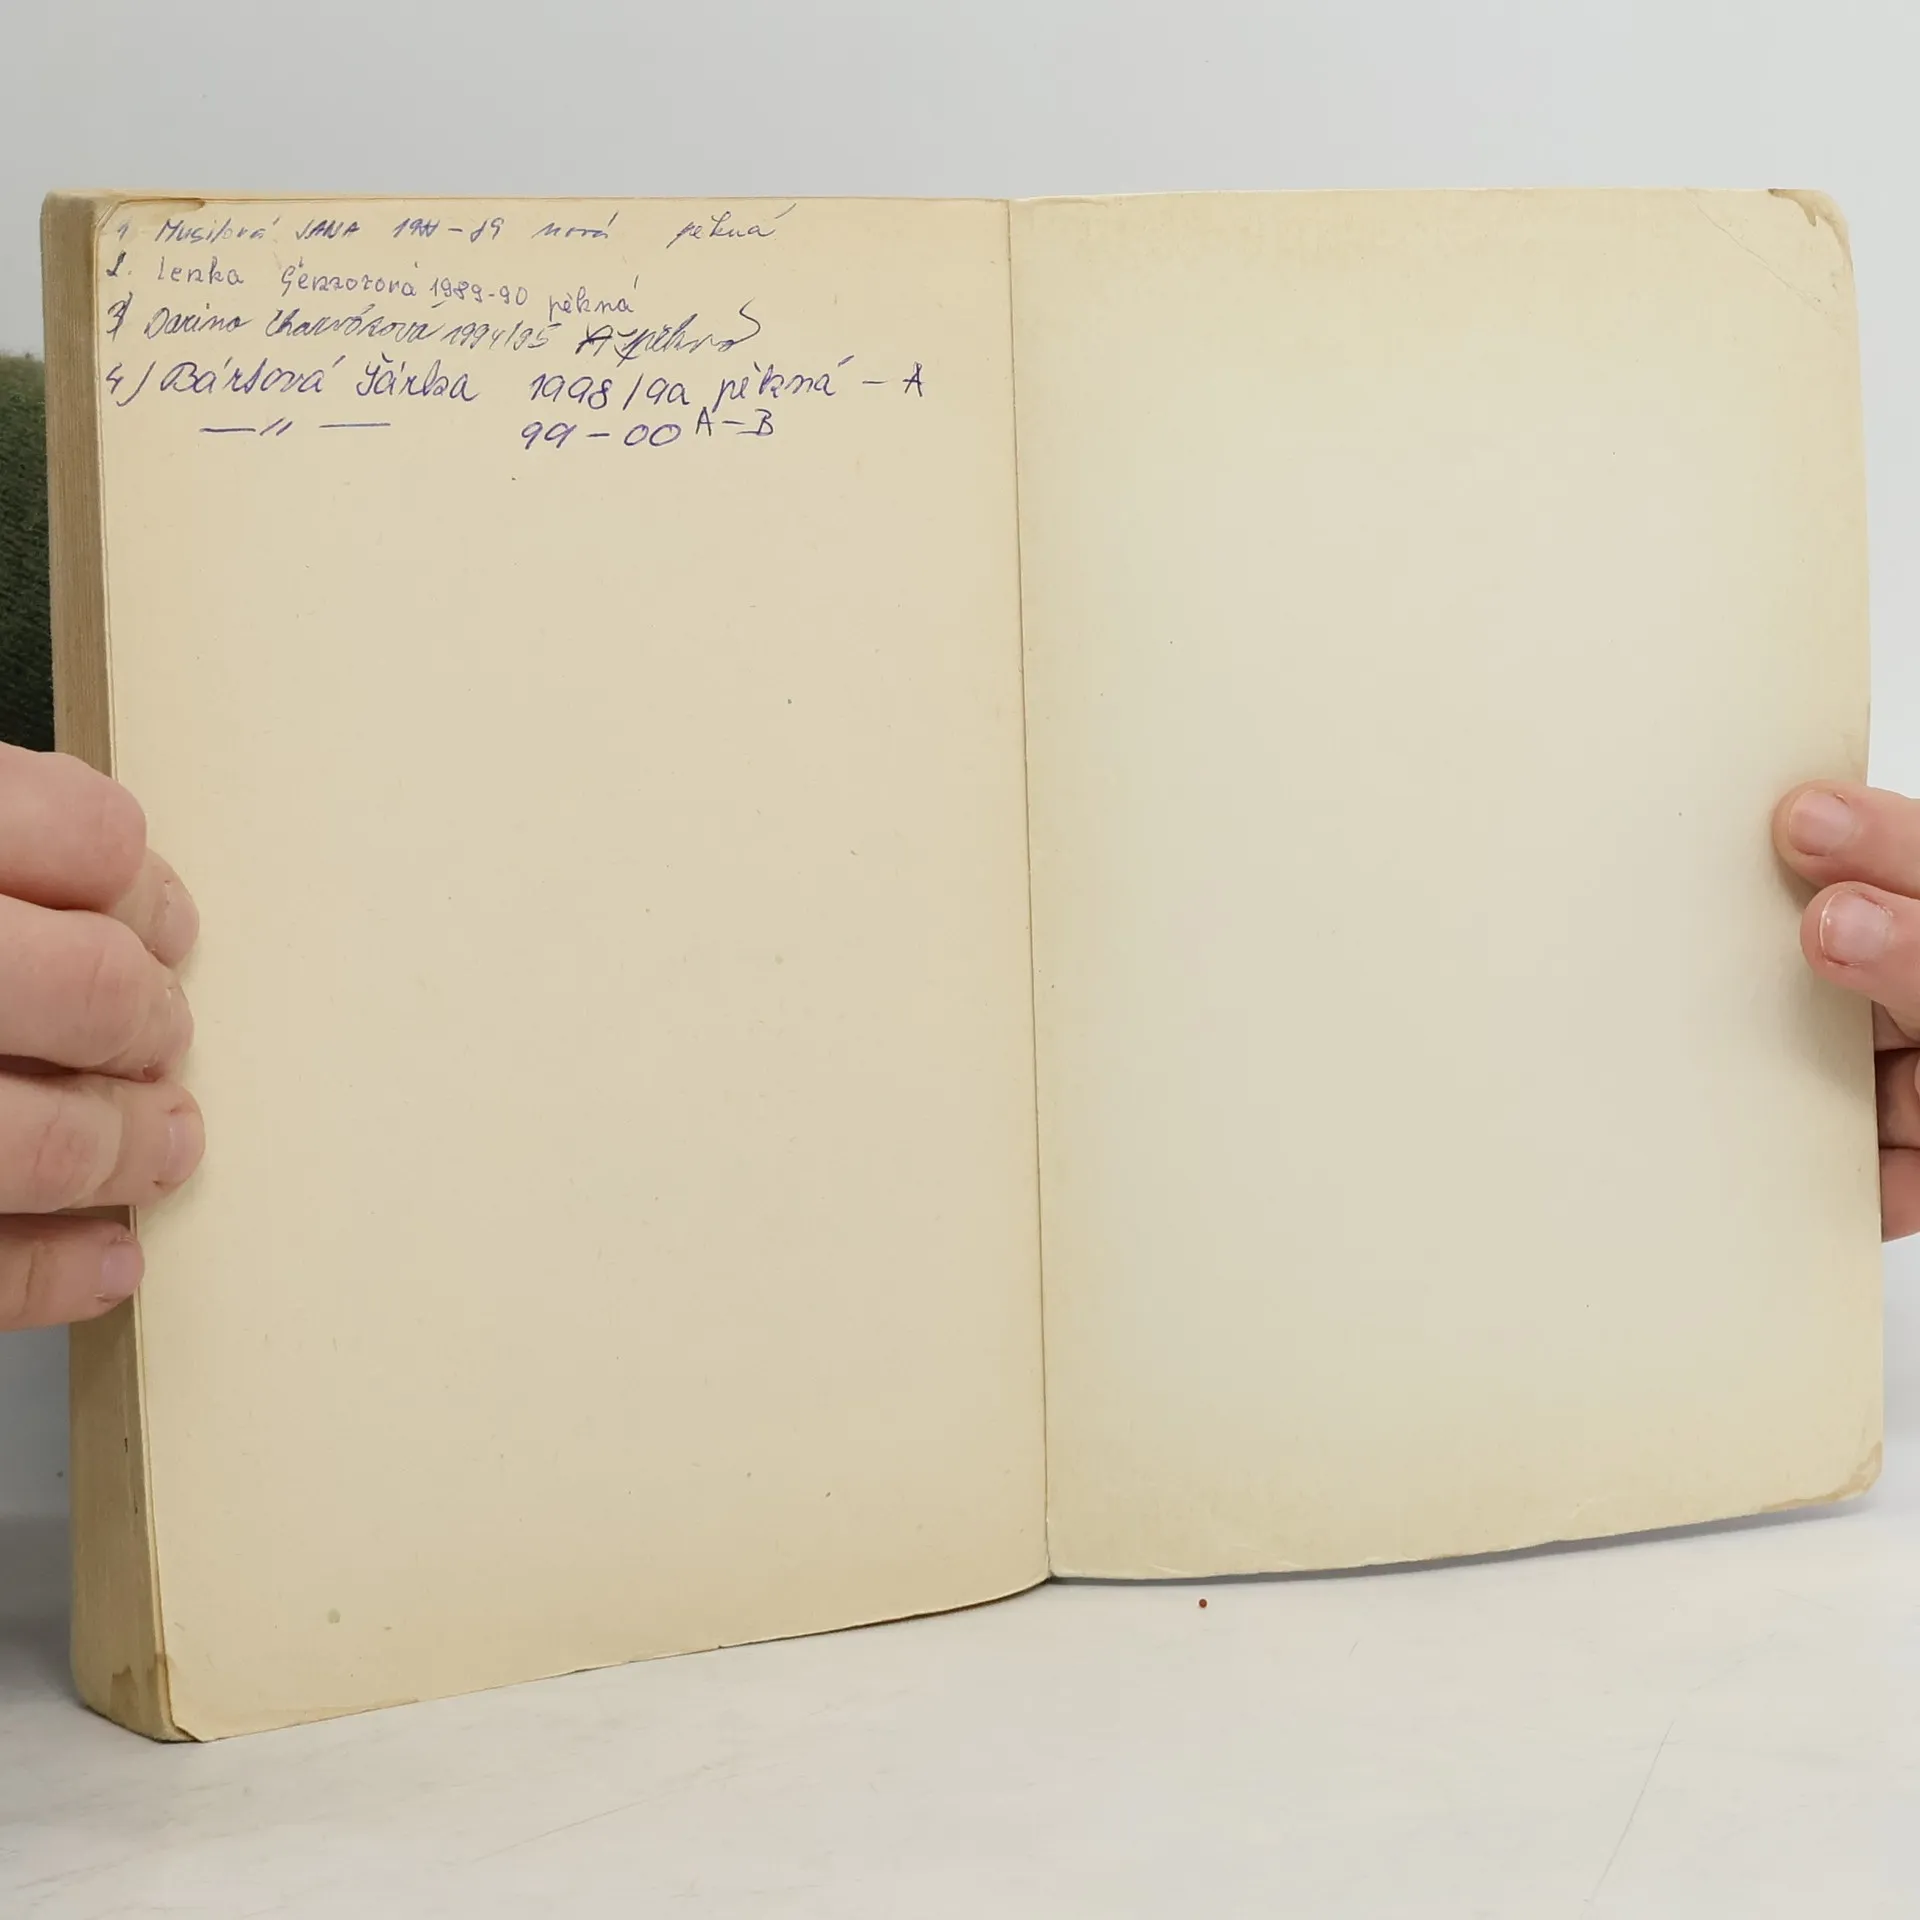 1 Musilová JANA 1988-89 nová pěkná
2. Lenka 1989-90 pěkná
3) Darina Charvátová 1994/95 A pěkná
4) Bártová Šárka 1998/99 pěkná - A
—〃— 99-00 A-B